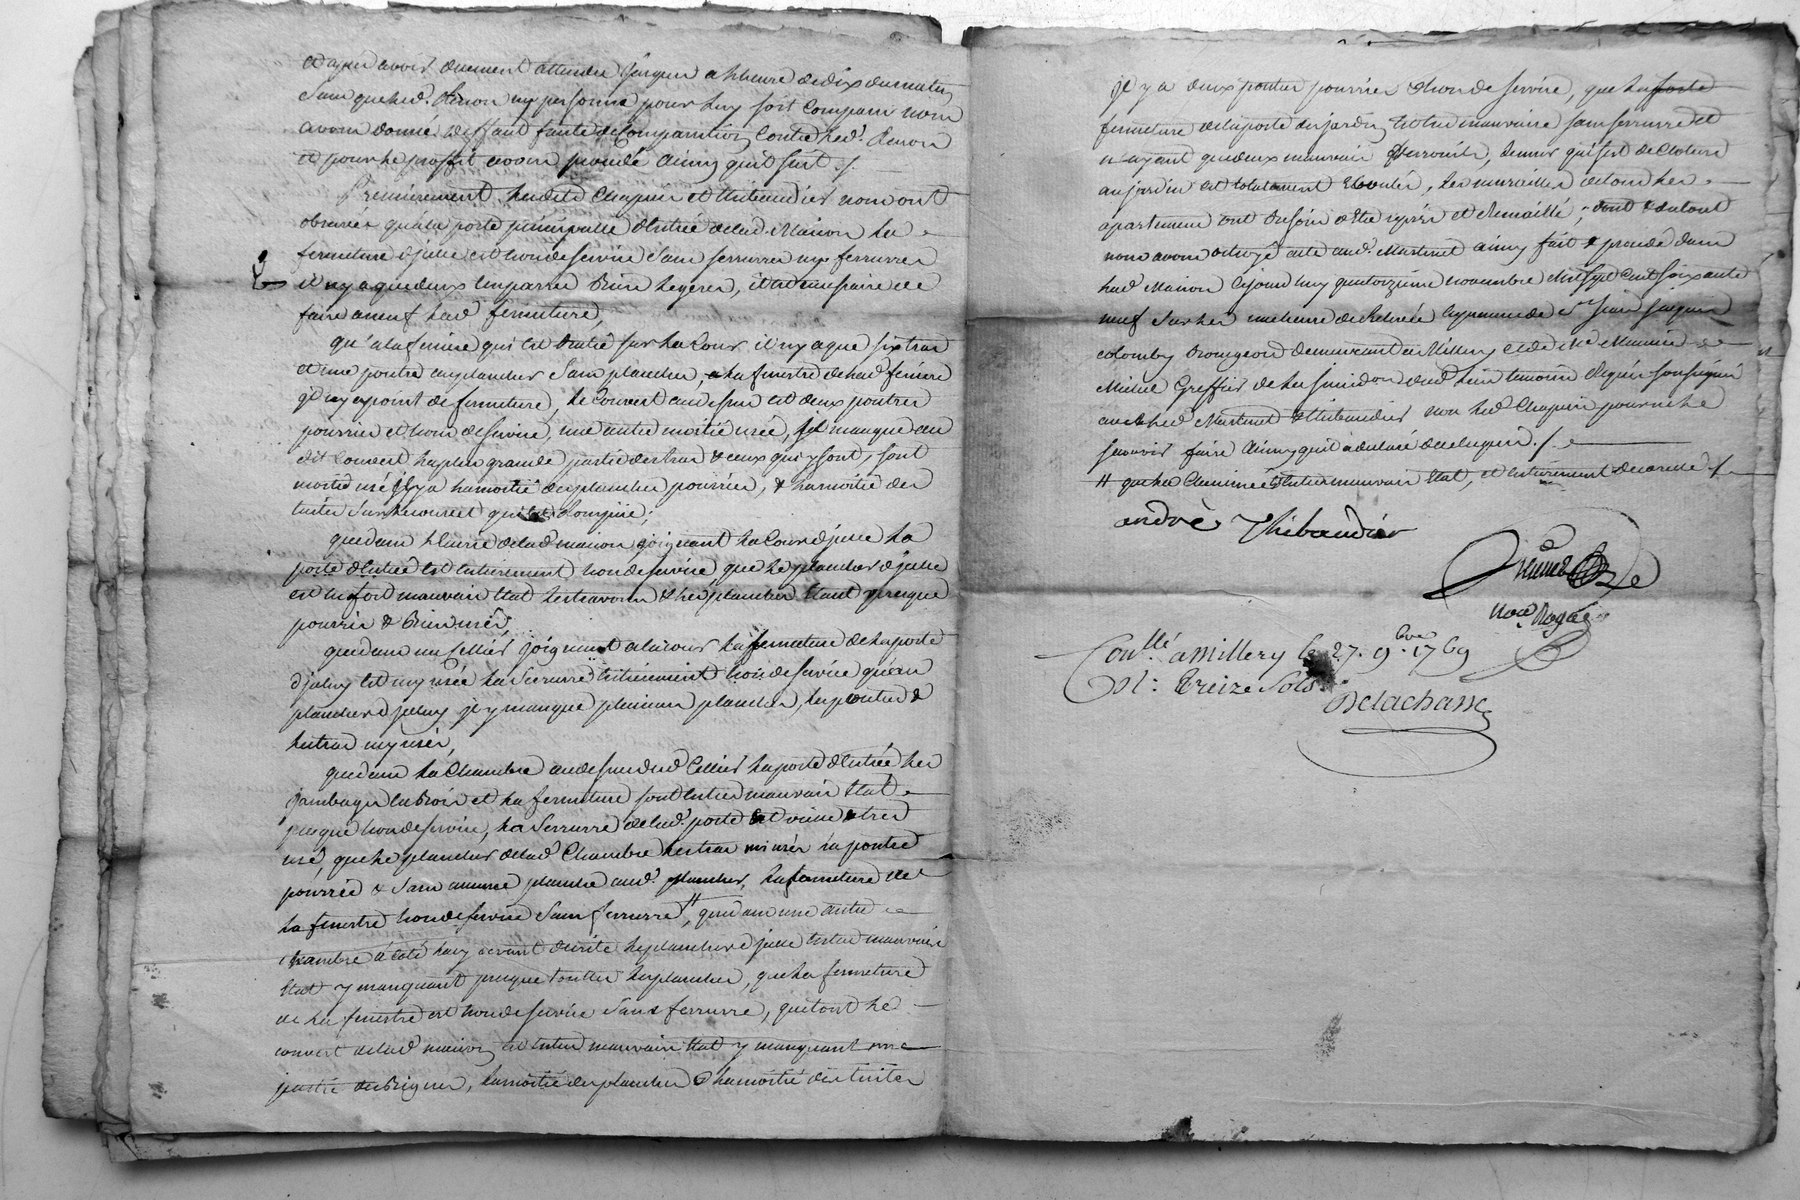 et après avoir duement attendu jusques a l'heure de dix du matin,
sans que led. Renon ny personne pour luy soit comparu nous
avons donné deffaut faute de comparution contre led. Renon
et pour le proffit avons procédé ainsy quil suit ./.
Premièrement lesdits Chapuis et Thibaudier nous ont
observés qu'a la porte principalle d'entrée de lad. Maison la
fermeture d'jcelle est hors de service sans serrures ny ferrures
il ny a que deux emparres bien legeres, il est necessaire de
faire a neuf lad. fermeture,
qu'a la feniere qui est batie sur la Cour il ny a que six tras
et une poutre au plancher sans plancher, a la fenestre de lad. feniere
jl ny a point de fermeture, le couvert au dessus est deux poutres
pourries et hors de service, une autre moitié usée, jl manque au
dit couvert la plus grande partie des tras & ceux qui y sont, sont
moitié usé jl y a la moitié des planches pourries, & la moitié des
tuiles sur le couvert qui est rompüe;
que dans l'ecurie de lad. maison joignant la Cour d'jcelle la
porte d'entrée est entierement hors de service, que le plancher d'jcelle
est en fort mauvais etat les travons & les planches etant presque
pourris & bien usés,
que dans un cellier joignant a l'ecurie la fermeture de la porte
d'jceluy est my usée la serrure entierement hors de service qu'au
plancher d'jceluy jl y manque plusieurs planches, les poutres &
les tras my usés,
que dans la Chambre au dessus dud. Cellier la porte d'entrée les
jambages en bois et la fermeture sont en tres mauvais etat
presque hors de service, la serrure de lad. porte est vieille & tres
usé, que le plancher de lad. Chambre les tras mi usés sa poutre
pourrie & sans aucune planche aud. plancher, la fermeture de
la fenestre hors de service sans ferrure #, que dans une autre
chambre a coté la cy devant decrite le plancher d'jcelle est en mauvais
etat y manquant presque toutes les planches, que la fermeture
de la fenestre est hors de service sans ferrure, que tout le
couvert de lad. maison est en tres mauvais etat y manquant une
partie des bignes, la moitié des planches & la moitié des tuiles
jl y a deux poutres pourries & hors de service, que la porte
fermeture de la porte du jardin est en mauvaise sans serrure et
n'ayant que deux mauvais verrouils, le mur qui sert de cloture
au jardin est totalement eboulé, les murailles de tous les
apartemens ont besoin d'etre repisés et remaillé; dont & du tout
nous avons octroyé acte aud. Martinet ainsy fait & procédé dans
lad. Maison cejourd'huy quatorzieme novembre mil sept cent soixante
neuf sur les une heure de relevée en presence de sr Jean Jacques
colomby Bourgeois demeurant a Millery et de Me Maurice
Michel Greffier de la jurisdiction dud. lieu temoins requis soussignés
avec led. Martinet & Thibaudier non led. Chapuis pour ne le
scavoir faire ainsy qu'il a declaré de ce enquis ./.
# que la Cheminée est en tres mauvais etat, et entierement decarelé ./.
andré Thibaudier
nore Royal
Conllé a Millery le 27. 9.bre 1769
R: treize Sols
Delachasse